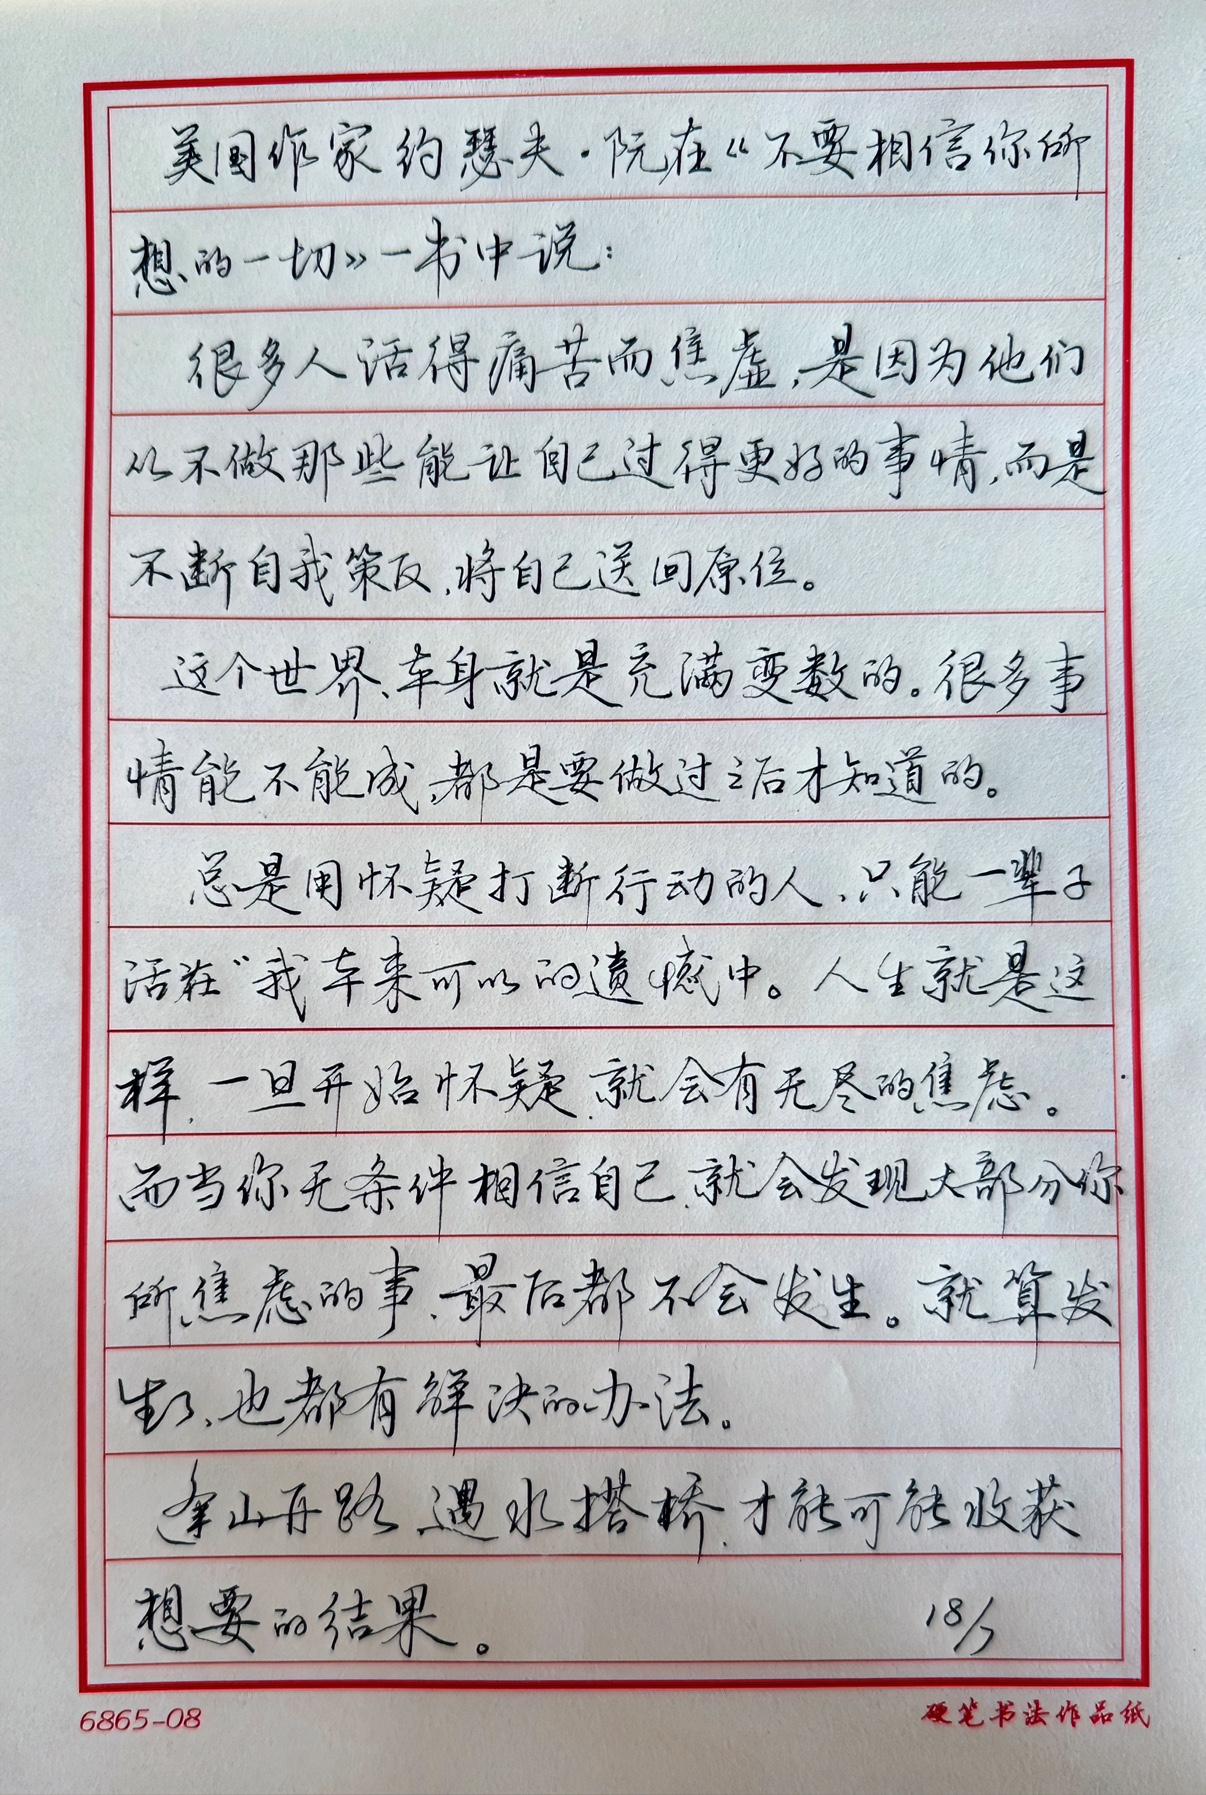 美国作家约瑟夫·阮在《不要相信你所
想的一切》一书中说：
很多人活得痛苦而焦虚，是因为他们
从不做那些能让自己过得更好的事情，而是
不断自我策反，将自己送回原位。
这个世界、本身就是充满变数的。很多事
情能不能成，都是要做过之后才知道的。
总是用怀疑打断行动的人，只能一辈子
活在“我本来可以的遗憾中。人生就是这
样，一旦开始怀疑，就会有无尽的焦虑。
而当你无条件相信自己，就会发现大部分你
所焦虑的事、最后都不会发生。就算发
生了、也都有解决的办法。
逢山开路，遇水搭桥，才能可能收获
想要的结果。
18/7
6865-08
硬笔书法作品纸